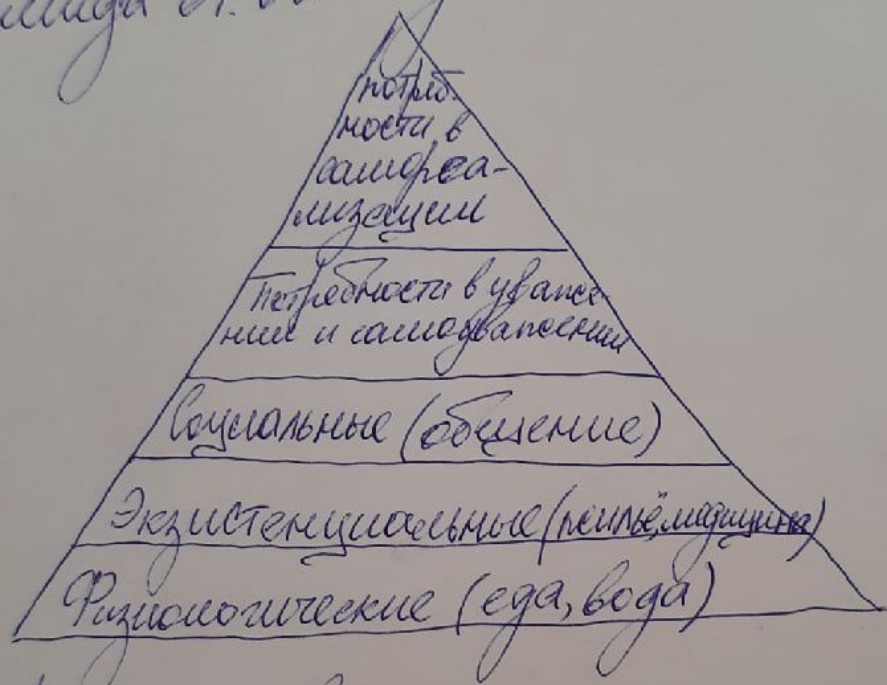 потреб-
ности в
самореа-
лизации
Потребности в уваже-
нии и самоуважении
Социальные (общение)
Экзистенциальные (жильё, медицина)
Физиологические (еда, вода)